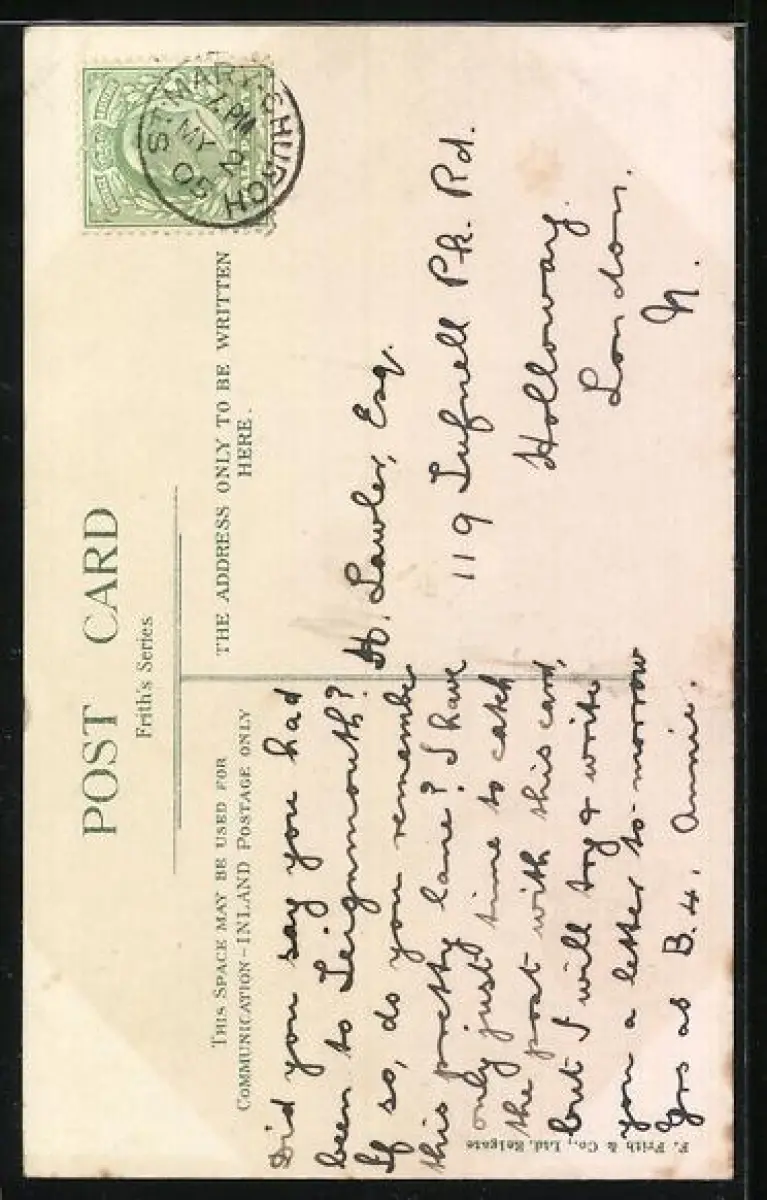 POST CARD
Frith's Series
THIS SPACE MAY BE USED FOR
COMMUNICATION-INLAND POSTAGE ONLY
THE ADDRESS ONLY TO BE WRITTEN
HERE.
ST. MARY-CHURCH
4 PM
MY 2
05
Did you say you had
been to Teignmouth?
If so, do you remember
this pretty lane? I have
only just time to catch
the post with this card,
but I will try & write
you a letter to-morrow
Yrs as B.4. Annie.
H. Lawler, Esq.
119 Tufnell Pk. Rd.
Holloway.
London.
N.
F. Frith & Co., Ltd. Reigate